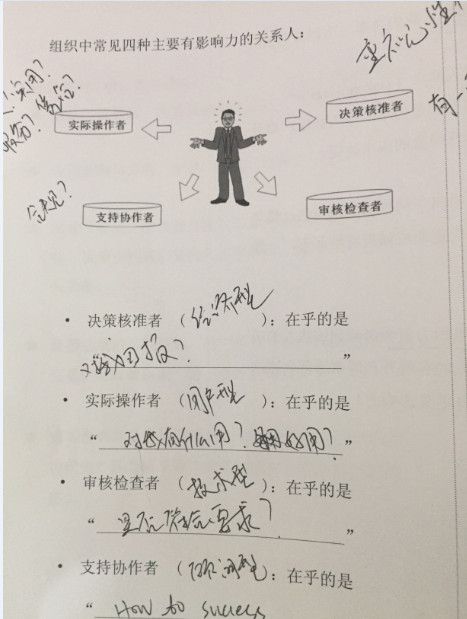 组织中常见四种主要有影响力的关系人：
实用？
实际操作者
决策核准者
支持协作者
审核检查者
• 决策核准者 （经济型）：在乎的是
回报？ ”
• 实际操作者 （用户型）：在乎的是
“ 对我有什么用？好用？ ”
• 审核检查者 （技术型）：在乎的是
“ 是否符合要求？ ”
• 支持协作者 （ 型）：在乎的是
“ How to success